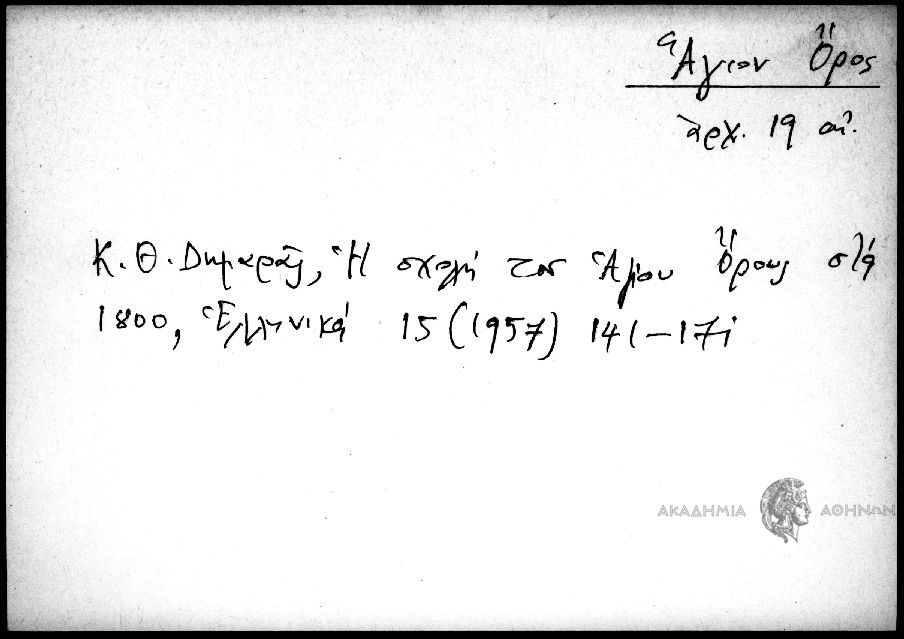 Ἅγιον Ὄρος
ἀρχ. 19 αἰ.
Κ. Θ. Δημαρᾶς, Ἡ σχολή τοῦ Ἁγίου Ὄρους στά
1800, Ἑλληνικά 15 (1957) 141-171
ΑΚΑΔΗΜΙΑ ΑΘΗΝΩΝ